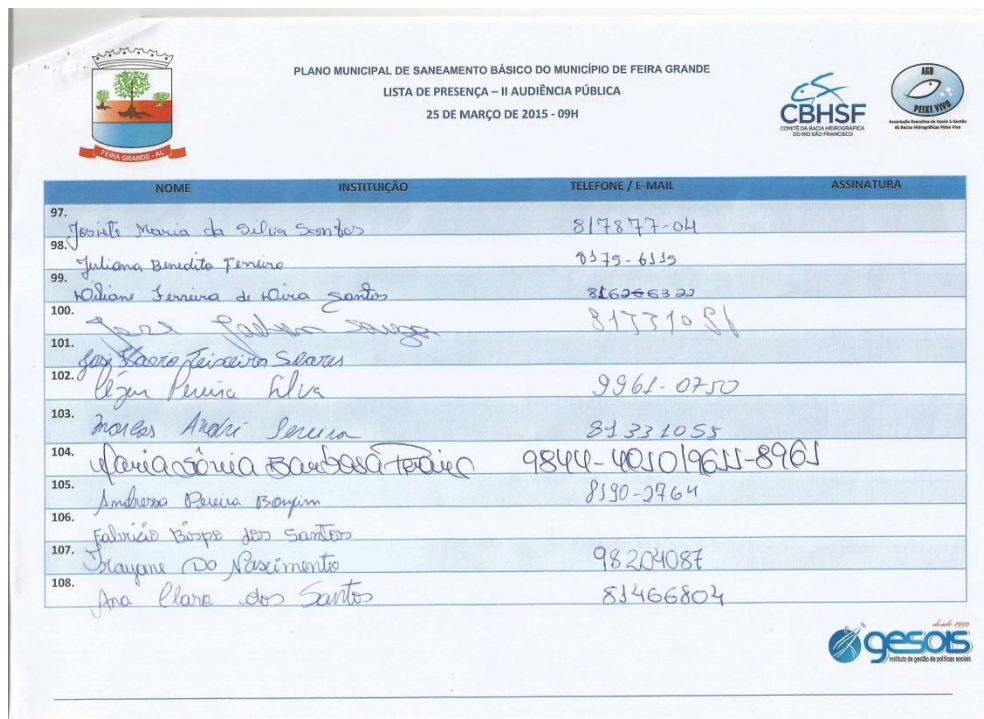 PLANO MUNICIPAL DE SANEAMENTO BÁSICO DO MUNICÍPIO DE FEIRA GRANDE
LISTA DE PRESENÇA – II AUDIÊNCIA PÚBLICA
25 DE MARÇO DE 2015 - 09H
FEIRA GRANDE - AL
CBHSF
COMITÊ DA BACIA HIDROGRÁFICA
DO RIO SÃO FRANCISCO
AGB
PEIXE VIVO
Associação Executiva de Apoio à Gestão
de Bacias Hidrográficas Peixe Vivo
NOME INSTITUIÇÃO TELEFONE / E-MAIL ASSINATURA
97. Josiete Maria da Silva Santos 817877-04
98. Juliana Benedito Ferreira 8175-6115
99. Ferreira de Santos
100. Souza
101. José Teixeira Soares
102. Pereira Silva 9961-0750
103. Marcos André Pereira 81331055
104. Maria Sônia Barbosa 9844-4010/9611-8961
105. Andressa Pereira Bonfim 8190-2764
106. Fabricio Bispo dos Santos
107. Do Nascimento 98204087
108. Ana Clara dos Santos 81466804
desde 1999
gesois
instituto de gestão de políticas sociais